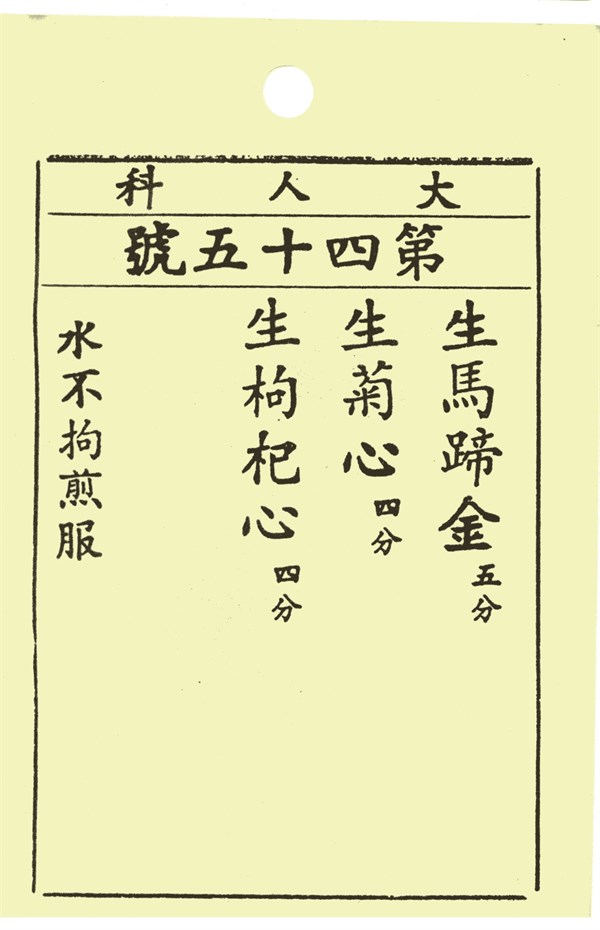 大人科
第四十五號
生馬蹄金五分
生菊心四分
生枸杞心四分
水不拘煎服